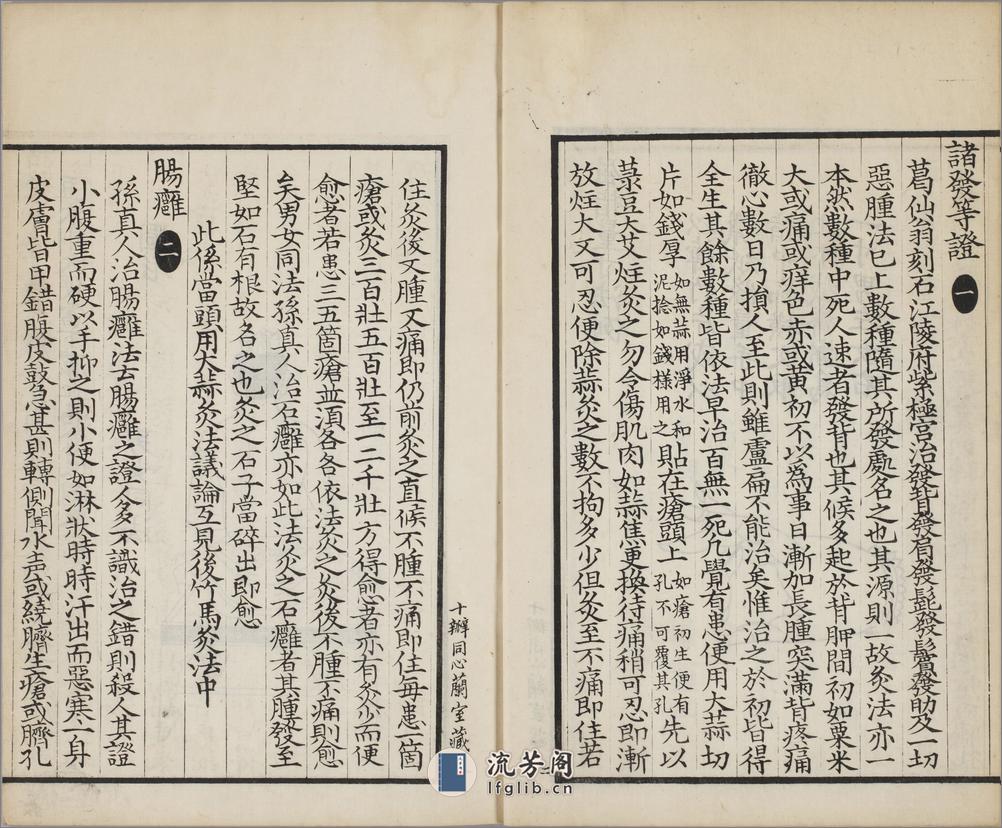 諸發等證 一
葛仙翁刻石江陵府紫極宮治發背發肓發髭發鬢發肋及一切
惡腫法已上數種隨其所發處名之也其源則一故灸法亦一
本然數種中死人速者發背也其候多起於背胛間初如粟米
大或痛或痒色赤或黃初不以為事日漸加長腫突滿背疼痛
徹心數日乃損人至此則雖盧扁不能治矣惟治之於初皆得
全生其餘數種皆依法早治百無一死凡覺有患便用大蒜切
片如錢厚如無蒜用淨水和泥捻如錢樣用之貼在瘡頭上如瘡初生便有孔不可覆其孔先以
菉豆大艾炷灸之勿令傷肌肉如蒜焦更換待痛稍可忍即漸
放炷大又可忍便除蒜灸之數不拘多少但灸至不痛即住若
住灸後又腫又痛即仍前灸之直候不腫不痛即住每患一箇
瘡或灸三百壯五百壯至一二千壯方得愈者亦有灸少而便
愈者若患三五箇瘡並須各各依法灸之灸後不腫不痛則愈
矣男女同法孫真人治石癰亦如此法灸之石癰者其腫發至
堅如石有根故名之也灸之石子當碎出即愈
此係當頭用大蒜灸法議論互見後竹馬灸法中
腸癰 二
孫真人治腸癰法云腸癰之證人多不識治之錯則殺人其證
小腹重而硬以手抑之則小便如淋狀時時汗出而惡寒一身
皮膚皆甲錯腹皮鼓急甚則轉側聞水声或繞臍生瘡或臍孔
十瓣同心蘭室藏
流芳阁
lfglib.cn